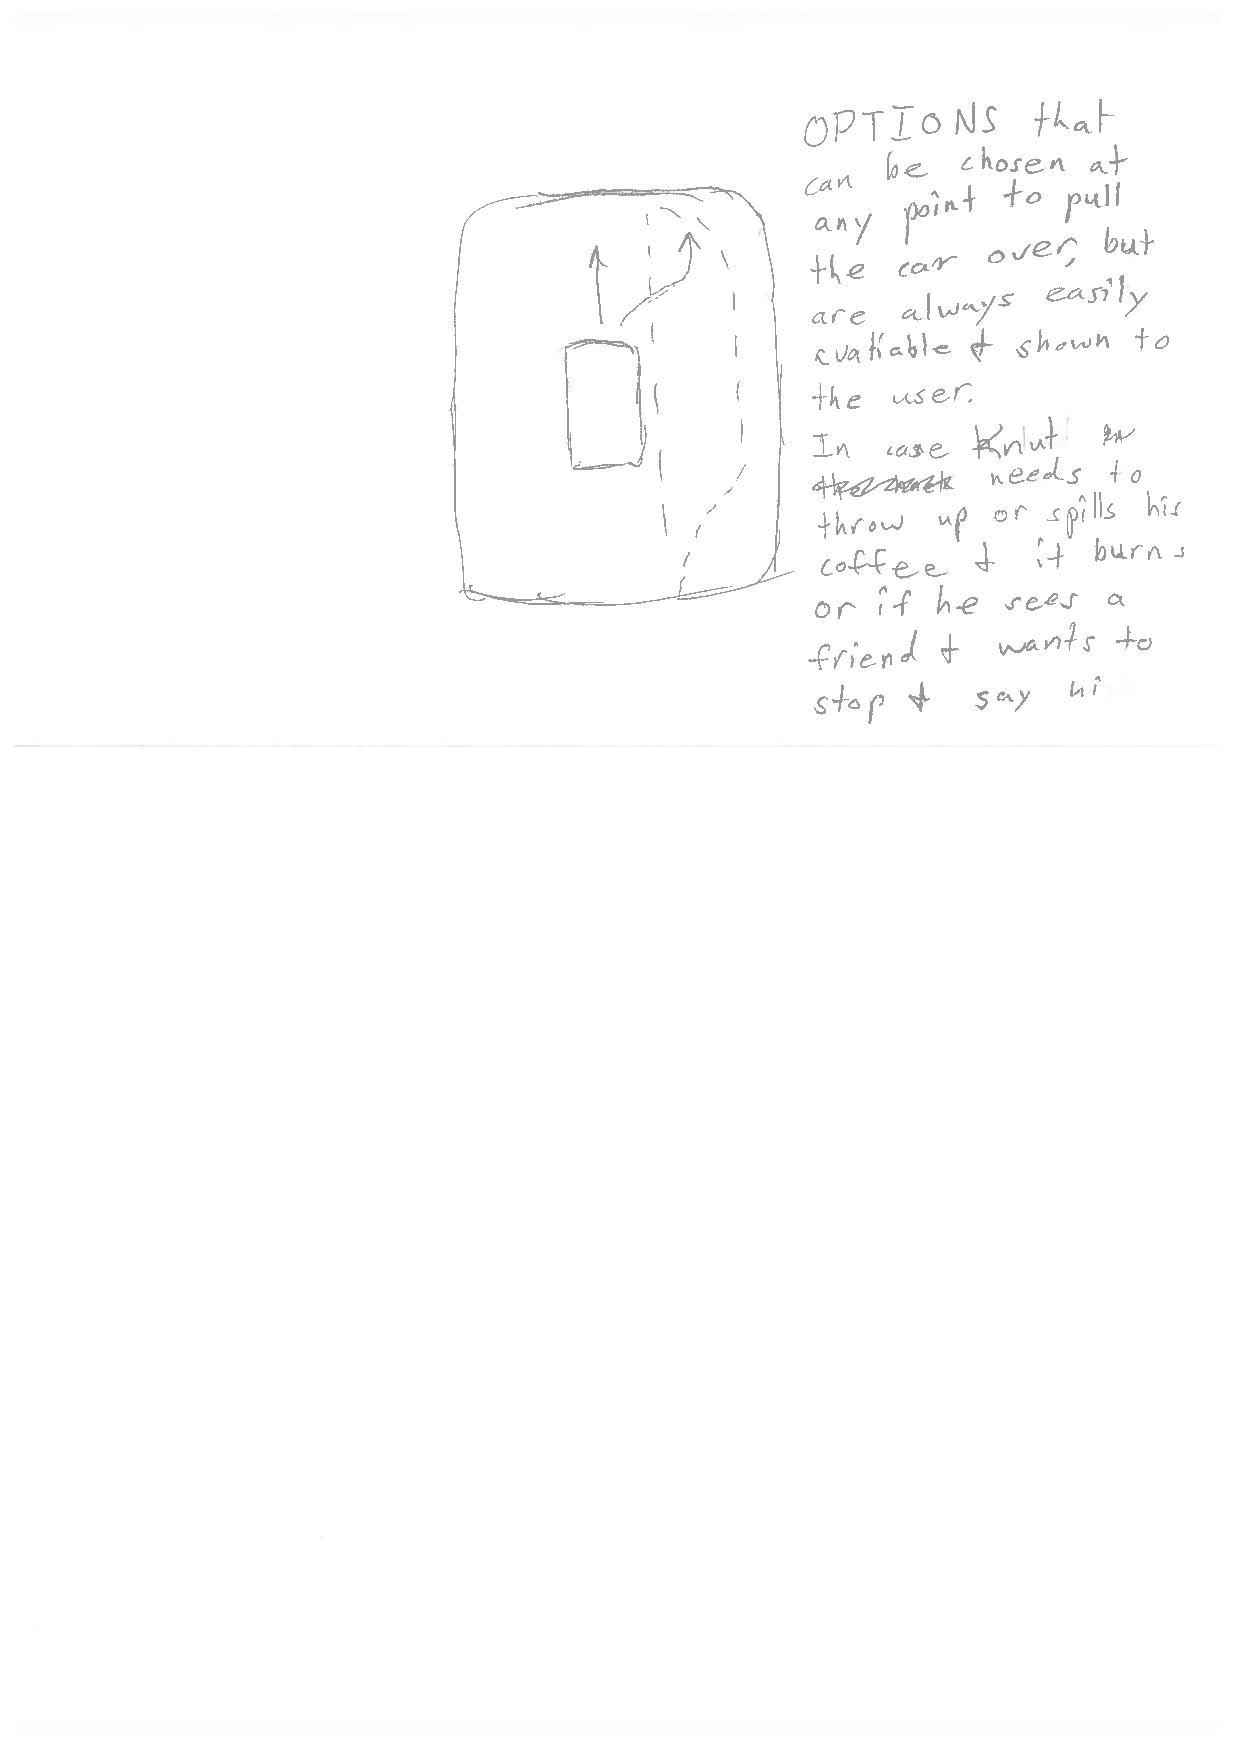 OPTIONS that
can be chosen at
any point to pull
the car over, but
are always easily
avatiable & shown to
the user.
In case Knut
needs to
throw up or spills his
coffee & it burns
or if he sees a
friend & wants to
stop & say hi